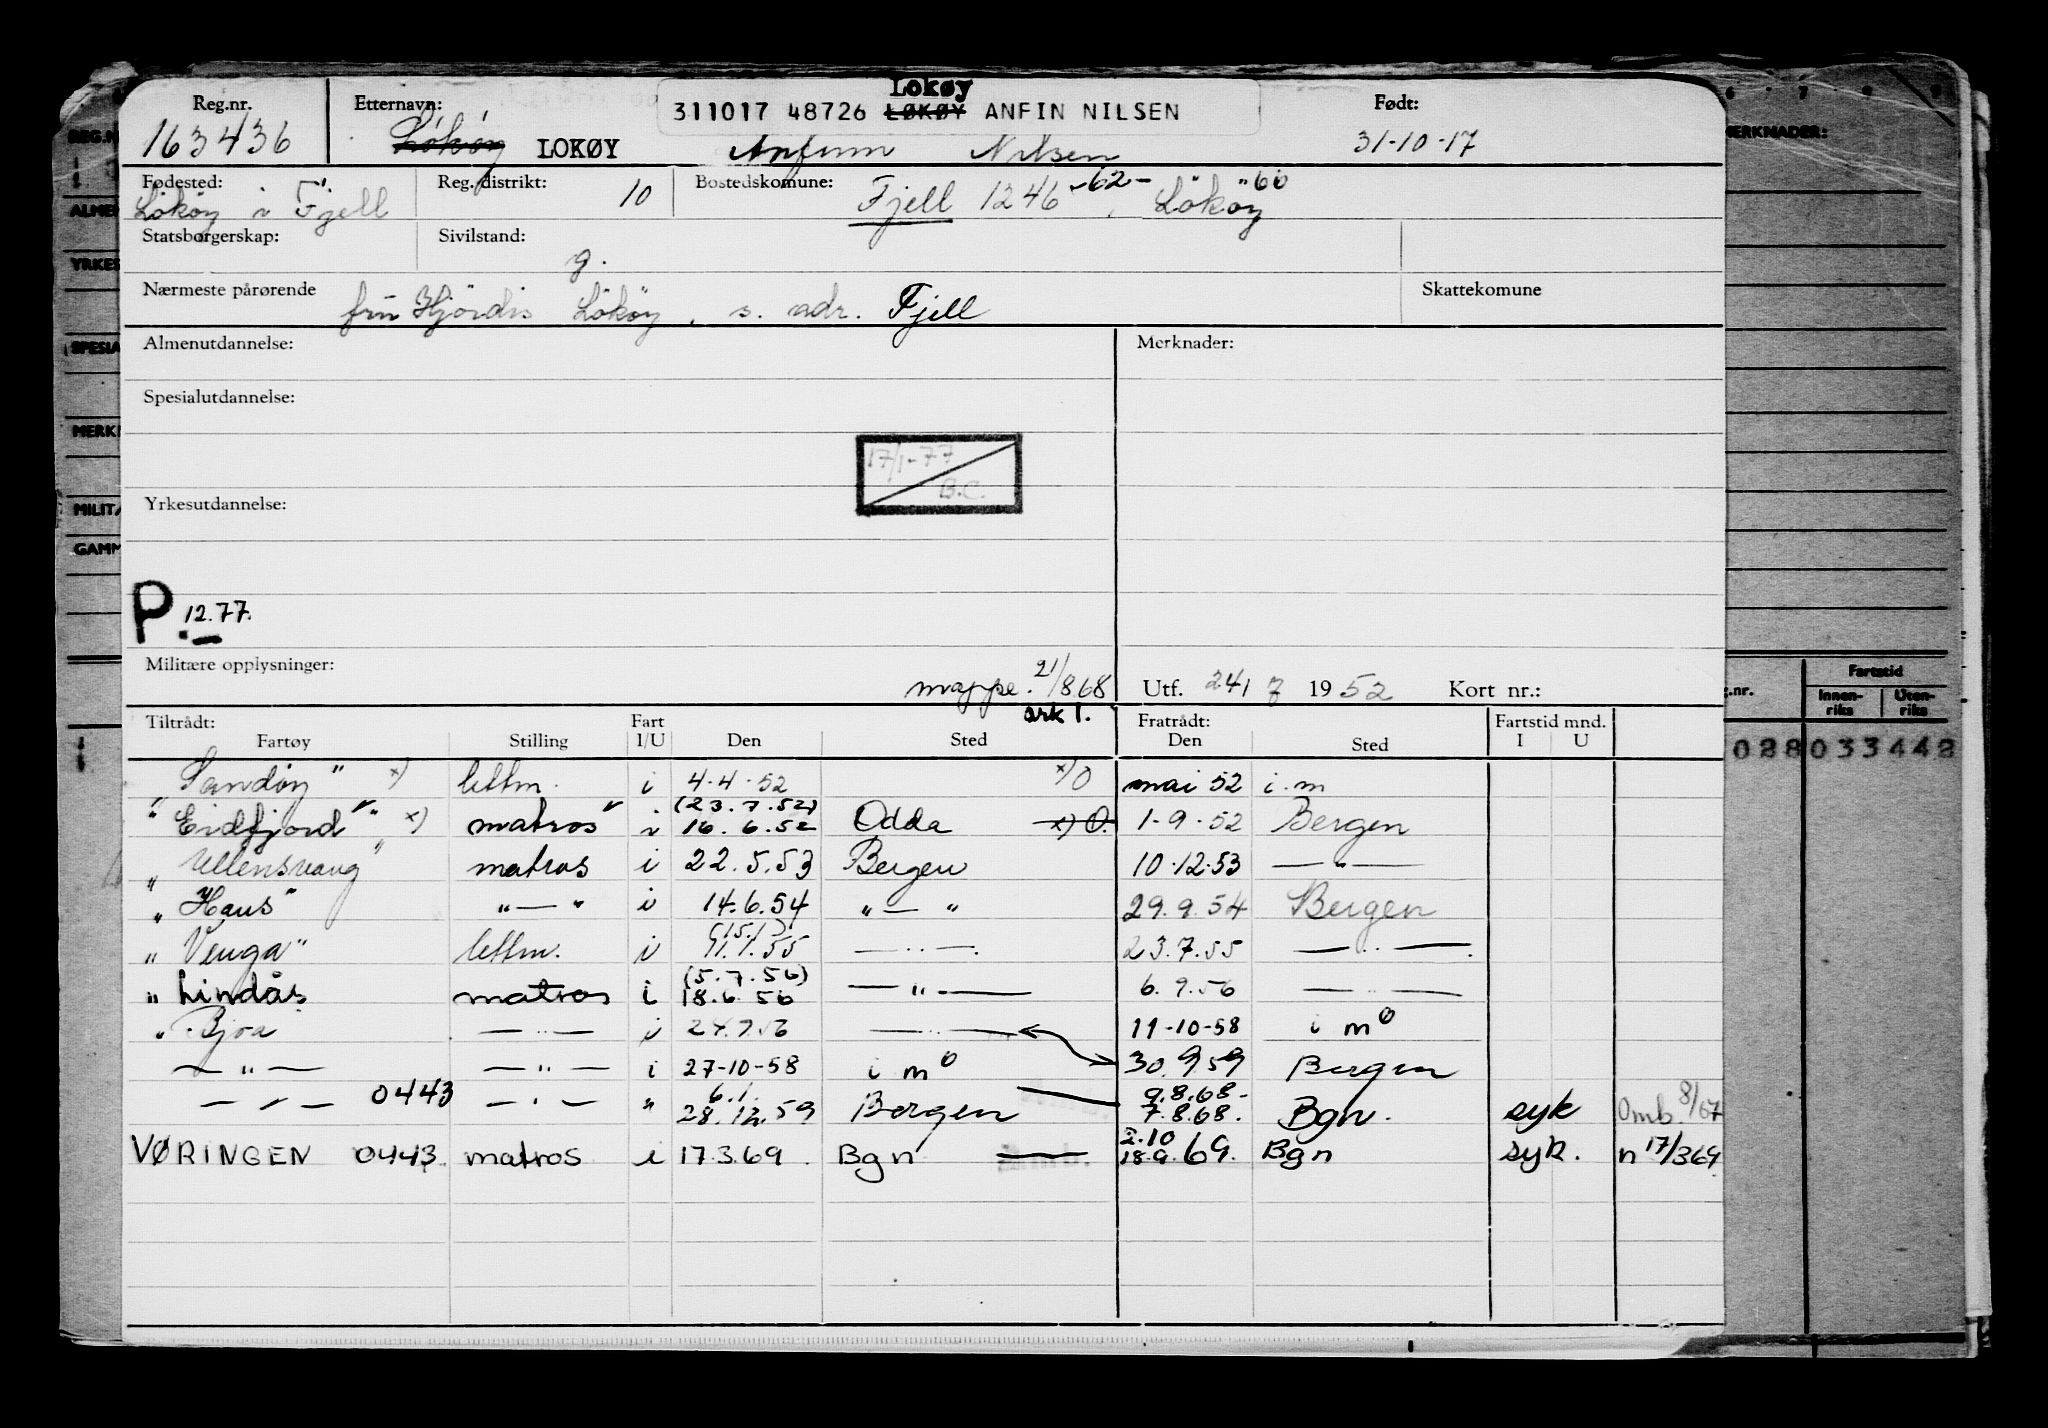 Reg.nr. Etternavn: Lokøy Født:
311017 48726 LOKØY ANFIN NILSEN
163436 Lökøy LOKØY Anfinn Nilsen 31-10-17
Fødested: Reg. distrikt: 10 Bostedskomune: Fjell 1246 -62- , Lökøy "60
Lökøy i Fjell
Statsborgerskap: Sivilstand: g.
Nærmeste pårørende Skattekomune
fru Hjördis Lökøy, s. adr. Fjell
Almenutdannelse: Merknader:
Spesialutdannelse:
17/1-77
B.C.
Yrkesutdannelse:
P 12.77.
Militære opplysninger: mappe 21/868 Utf. 24/7 1952 Kort nr.:
ark 1.
Tiltrådt: Fart Fratrådt: Fartstid mnd.
Fartøy Stilling I/U Den Sted Den Sted I U
"Sandøy" x) lettm. i 4.4.52 x) O mai 52 i.m
"Eidfjord" x) matros i (23.7.52) 16.6.52 Odda x) O. 1-9-52 Bergen
"Ullensvang" matros i 22.5.53 Bergen 10.12.53 — " —
"Haus" " — " i 14.6.54 " — " 29.9.54 Bergen
"Venga" lettm. i (15.1) 11.1.55 — " — 23.7.55 — " —
" Lindås matros i (5.7.56) 18.6.56 — " — 6.9.56 — " —
" Bjoa — " — i 24.9.56 — " — 11-10-58 i mo
— " — — " — i 27-10-58 i mo 30.9.59 Bergen
— " — 0443 — " — " 6.1. 28.12.59 Bergen 9.8.68- 7.8.68. Bgn. syk Omb. 8/67
VØRINGEN 0443 matros i 17.3.69. Bgn 2.10 18.9.69. Bgn syk. n 17/369
REG.N
ALMEN
YRKES
SPESIA
MERK
MILIT
GAMM
MERKNADER:
Fartstid
g.nr. Innen-riks Uten-riks
028033442